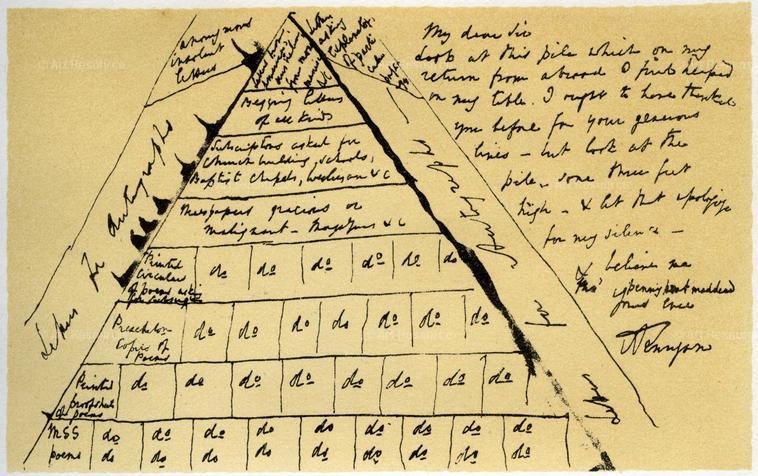 anonymous
insolent
letters
Letters for Autographs
Begging letters
of all kinds
Subscriptions asked for
Church building, schools,
Baptist Chapels, Wesleyan &c
Newspapers gracious or
malignant – Magazines &c
Printed
Circular
of poems
do do do do do do
Presentation
Copies of
Poems
do do do do do do do
Printed
proofsheets
of poems
do do do do do do do do
MSS
poems
do do do do do do do do do
do do do do do do do do do
letters for Autographs
My dear Sir
Look at this pile which on my
return from abroad I find heaped
on my table. I ought to have thanked
you before for your generous
lines – but look at the
pile – some three feet
high – & let that apologize
for my silence –
& believe me
this pennypost maddened
Yours ever
ATennyson